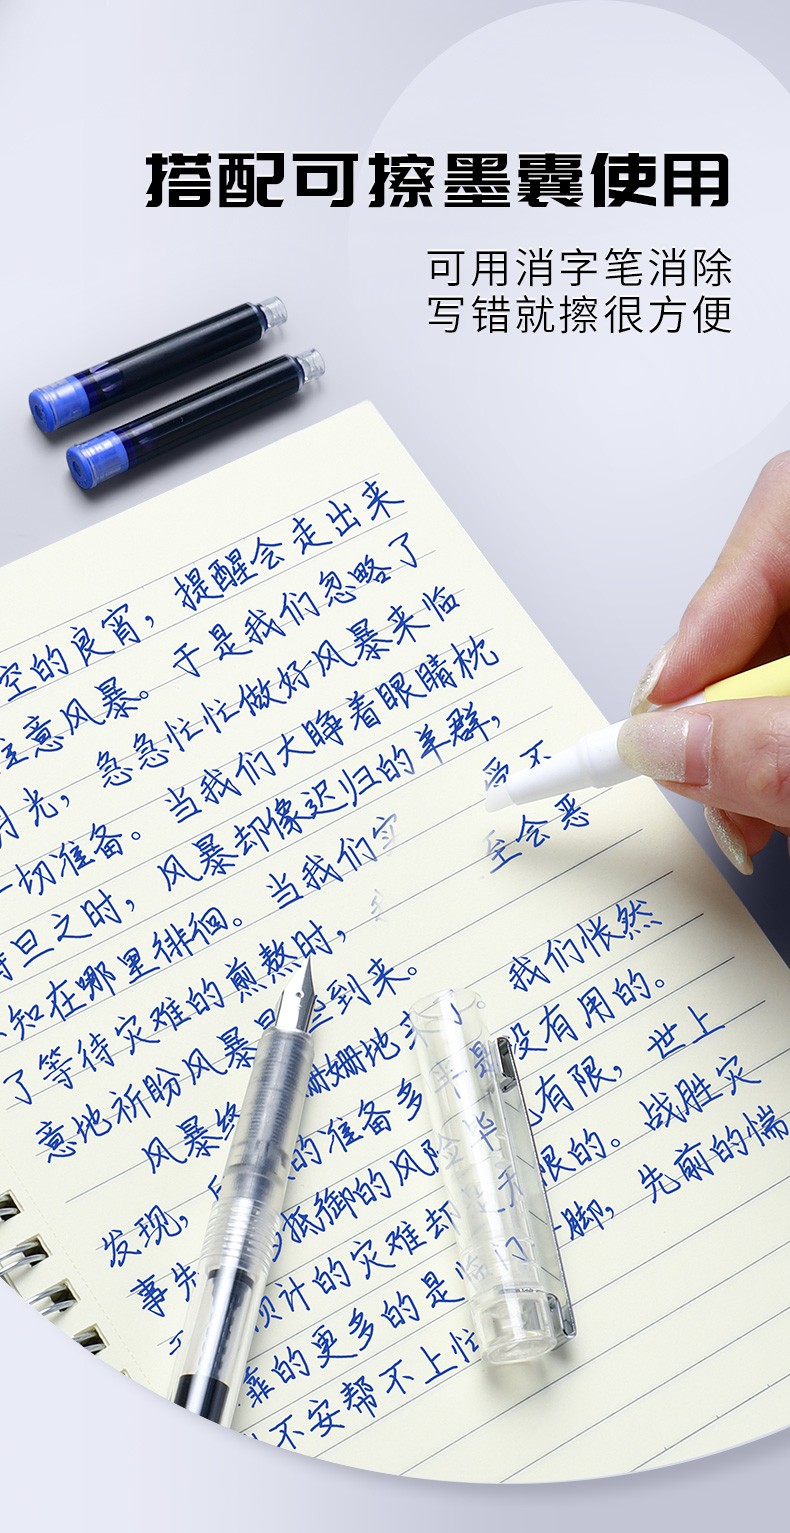 搭配可擦墨囊使用
可用消字笔消除
写错就擦很方便
空的良宵，提醒会走出来
注意风暴。于是我们忽略了
月光，急急忙忙做好风暴来临
一切准备。当我们大睁着眼睛枕
待旦之时，风暴却像迟归的羊群，
知在哪里徘徊。当我们 受不
了等待灾难的煎熬时， 至会恶
意地祈盼风暴 到来。
风暴终 姗姗地来了。我们怅然
发现， 的准备多半是没有用的。
事先 抵御的风险毕 有限，世上
计的灾难却是无限的。战胜灾
靠的更多的是临门一脚，先前的惴
不安帮不上忙